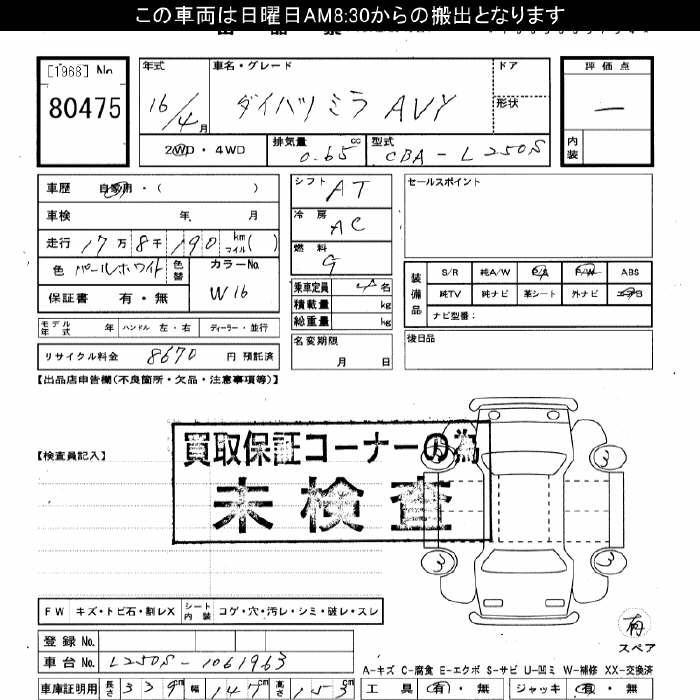 この車両は日曜日AM8:30からの搬出となります
[1968] No
80475
年式 車名・グレード ドア 評価点
16/4月 ダイハツ ミラ AVY 形状 —
2WD・4WD 排気量 0.65 cc 型式 CBA-L250S 内装
車歴 自家用・( )
シフト AT
セールスポイント
車検 年 月
冷房 AC
走行 17万8千190 km マイル( )
燃料 G
色 パールホワイト 色替 カラーNo. W16
装備品 S/R 純A/W P/S P/W ABS
保証書 有・無
乗車定員 4名
純TV 純ナビ 革シート 外ナビ エアB
積載量 kg
ナビ型番:
モデル年式 年 ハンドル 左・右 ディーラー・並行
総重量 kg
リサイクル料金 8670 円 預託済
名変期限 月 日
後日品
【出品店申告欄(不良箇所・欠品・注意事項等)】
【検査員記入】
買取保証コーナーの為
未検査
3
3
3
FW キズ・トビ石・割レX シート内装 コゲ・穴・汚レ・シミ・破レ・スレ
有
スペア
登録 No.
車台 No. L250S-1061963
A-キズ C-腐食 E-エクボ S-サビ U-凹ミ W-補修 XX-交換済
車庫証明用 長さ 339cm 幅 147cm 高さ 153cm
工具 有・無 ジャッキ 有・無